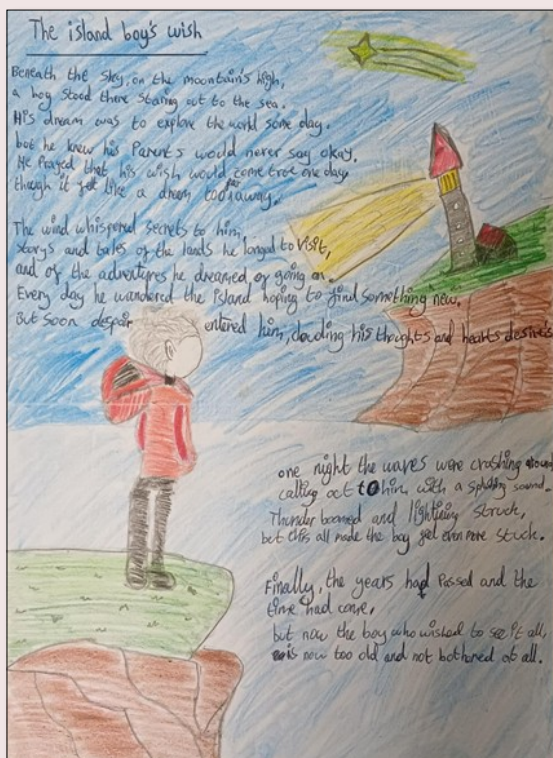 The island boy's wish
Beneath the sky, on the mountain's high,
a boy stood there staring out to the sea.
His dream was to explore the world some day.
but he knew his Parents would never say okay.
He Prayed that his wish would come true one day,
though it felt like a dream too far away.
The wind whispered secrets to him,
storys and tales of the lands he longed to visit,
and of the adventures he dreamed of going on.
Every day he wandered the Island hoping to find something new,
But soon despair entered him, clouding his thoughts and hearts desires
one night the waves were crashing around
calling out to him, with a splashing sound.
Thunder boomed and lightining struck,
but this all made the boy feel even more stuck.
Finally, the years had Passed and the
time had come,
but now the boy who wished to see it all,
is now too old and not bothered at all.